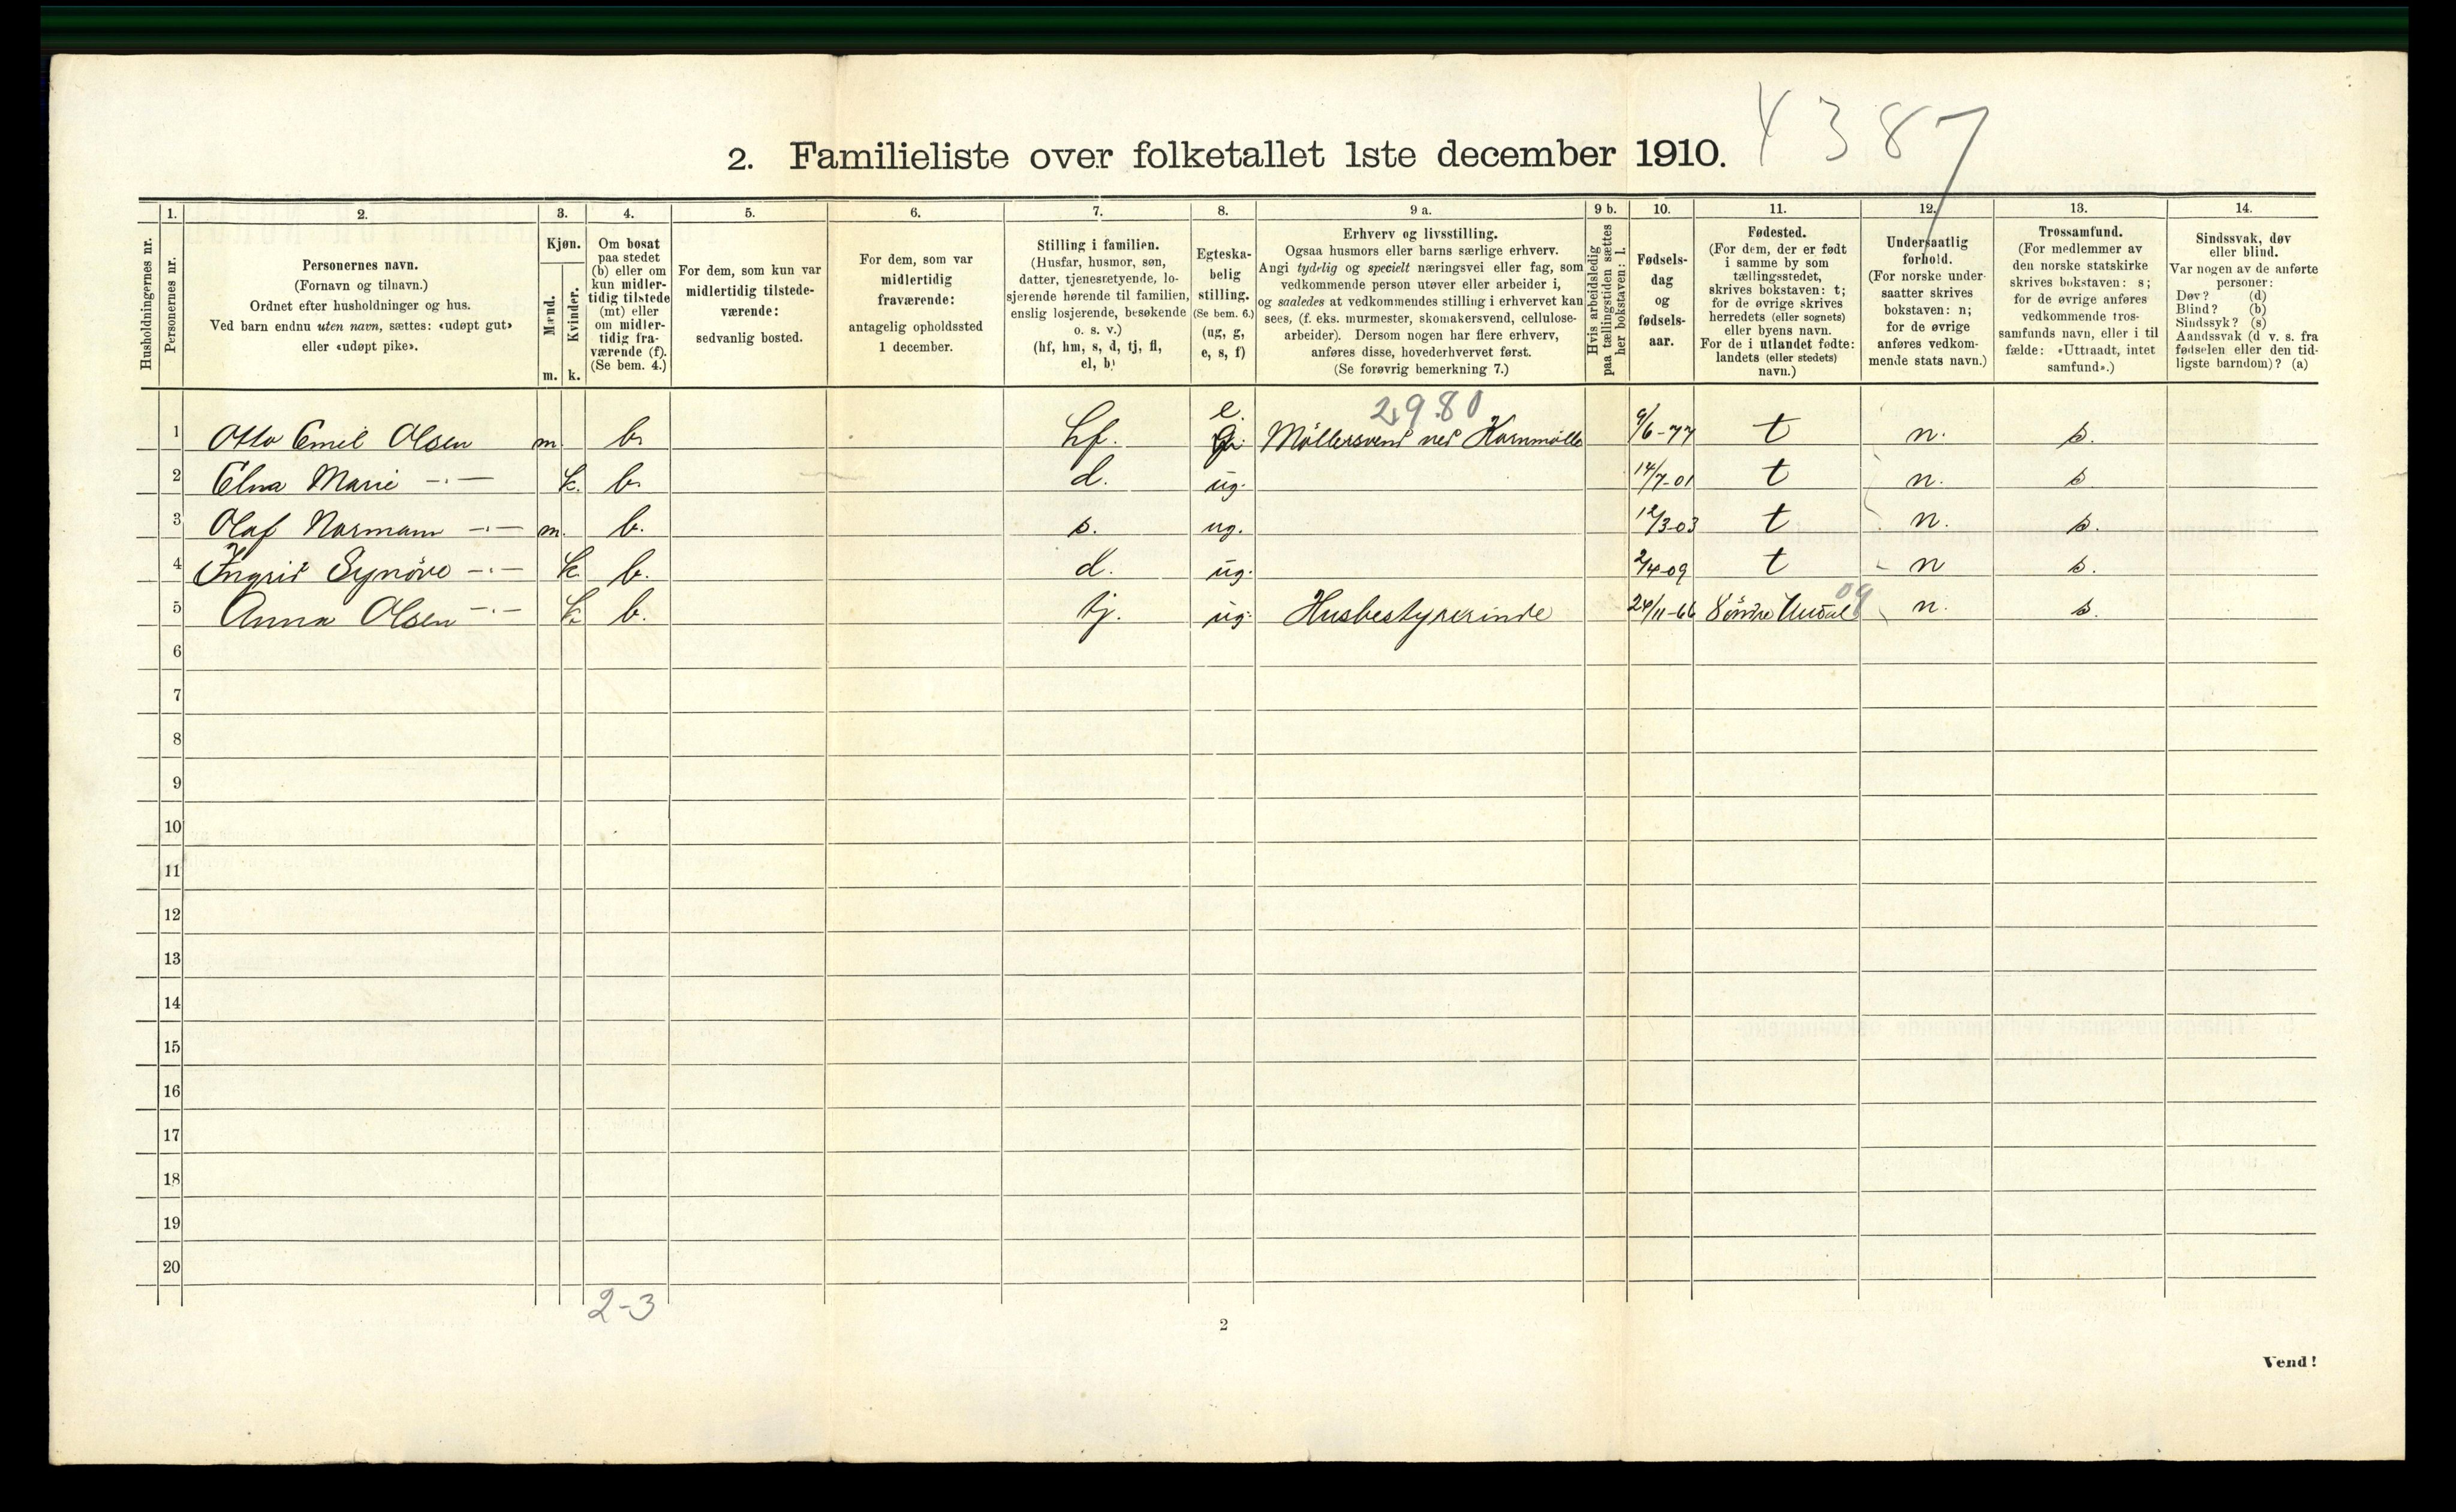 4387
2. Familieliste over folketallet 1ste december 1910.
Husholdningernes nr.
1.
Personernes nr.
2.
Personernes navn.
(Fornavn og tilnavn.)
Ordnet efter husholdninger og hus.
Ved barn endnu uten navn, sættes: «udøpt gut»
eller «udøpt pike».
3.
Kjøn.
Mænd.
Kvinder.
m. k.
4.
Om bosat
paa stedet
(b) eller om
kun midler-
tidig tilstede
(mt) eller
om midler-
tidig fra-
værende (f).
(Se bem. 4.)
5.
For dem, som kun var
midlertidig tilstede-
værende:
sedvanlig bosted.
6.
For dem, som var
midlertidig
fraværende:
antagelig opholdssted
1 december.
7.
Stilling i familien.
(Husfar, husmor, søn,
datter, tjenestetyende, lo-
sjerende hørende til familien,
enslig losjerende, besøkende
o. s. v.)
(hf, hm, s, d, tj, fl,
el, b)
8.
Egteska-
belig
stilling.
(Se bem. 6.)
(ug, g,
e, s, f)
9 a.
Erhverv og livsstilling.
Ogsaa husmors eller barns særlige erhverv.
Angi tydelig og specielt næringsvei eller fag, som
vedkommende person utøver eller arbeider i,
og saaledes at vedkommendes stilling i erhvervet kan
sees, (f. eks. murmester, skomakersvend, cellulose-
arbeider). Dersom nogen har flere erhverv,
anføres disse, hovederhvervet først.
(Se forøvrig bemerkning 7.)
9 b.
Hvis arbeidsledig
paa tællingstiden sættes
her bokstaven: l.
10.
Fødsels-
dag
og
fødsels-
aar.
11.
Fødested.
(For dem, der er født
i samme by som
tællingsstedet,
skrives bokstaven: t;
for de øvrige skrives
herredets (eller sognets)
eller byens navn.
For de i utlandet fødte:
landets (eller stedets)
navn.)
12.
Undersaatlig
forhold.
(For norske under-
saatter skrives
bokstaven: n;
for de øvrige
anføres vedkom-
mende stats navn.)
13.
Trossamfund.
(For medlemmer av
den norske statskirke
skrives bokstaven: s;
for de øvrige anføres
vedkommende tros-
samfunds navn, eller i til-
fælde: «Uttraadt, intet
samfund».)
14.
Sindssvak, døv
eller blind.
Var nogen av de anførte
personer:
Døv? (d)
Blind? (b)
Sindssyk? (s)
Aandssvak (d. v. s. fra
fødselen eller den tid-
ligste barndom)? (a)
2980
1 Otto Emil Olsen m. b. hf. e. g. Möllersvend ved Kornmölle 9/6-77 t n. s.
2 Elna Marie -"- k. b. d. ug. 14/7-01 t n. s
3 Olaf Normann -"- m. b. s. ug. 12/3-03 t n. s.
4 Ingrid Synöve -"- k b. d. ug. 2/4-09 t n s.
09
5 Anna Olsen -"- k b. tj. ug. Husbestyrerinde 24/11-66 Söndre Undal n. s.
6
7
8
9
10
11
12
13
14
15
16
17
18
19
20
2-3
2
Vend!